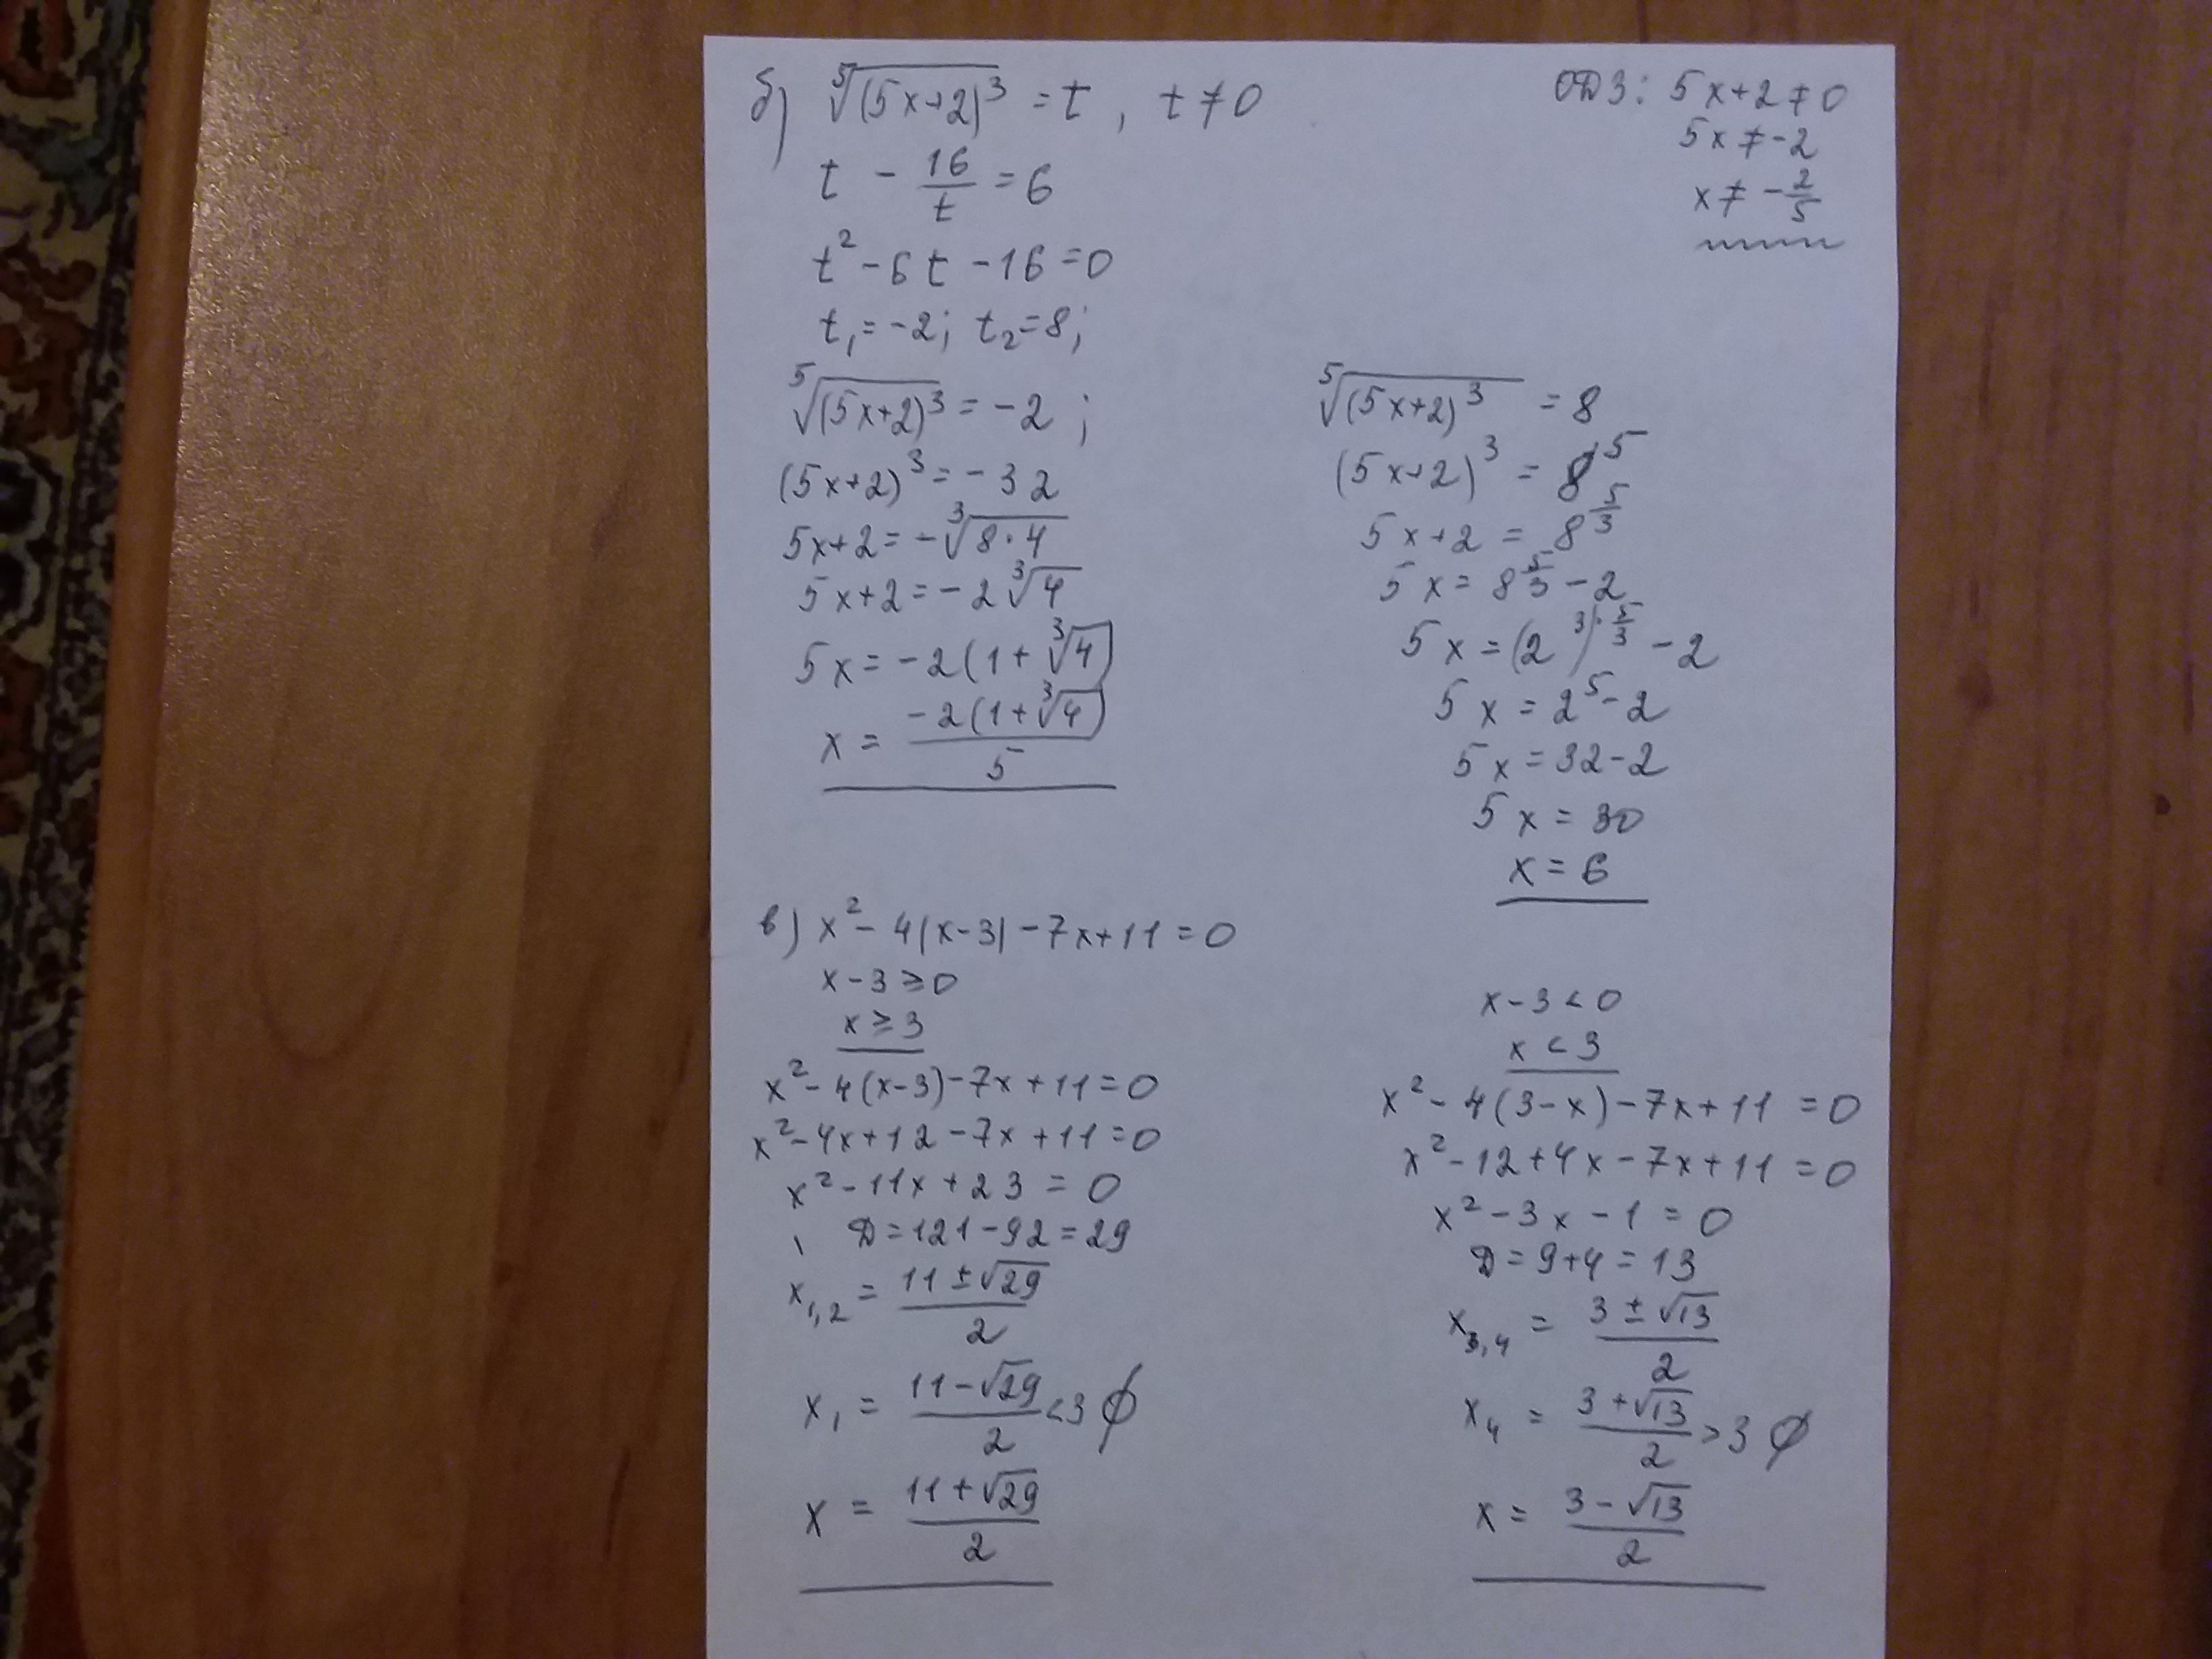 б) ⁵√(5x+2)³ = t, t ≠ 0
ОДЗ: 5x+2 ≠ 0
5x ≠ -2
x ≠ -2/5
t - 16/t = 6
t² - 6t - 16 = 0
t₁ = -2; t₂ = 8;
⁵√(5x+2)³ = -2;
(5x+2)³ = -32
5x+2 = -³√8·4
5x+2 = -2³√4
5x = -2(1+³√4)
x = -2(1+³√4)/5
⁵√(5x+2)³ = 8
(5x+2)³ = 8⁵
5x+2 = 8^(5/3)
5x = 8^(5/3) - 2
5x = (2³)^(·5/3) - 2
5x = 2⁵ - 2
5x = 32-2
5x = 30
x = 6
в) x² - 4|x-3| - 7x + 11 = 0
x-3 ≥ 0
x ≥ 3
x² - 4(x-3) - 7x + 11 = 0
x² - 4x + 12 - 7x + 11 = 0
x² - 11x + 23 = 0
D = 121 - 92 = 29
x₁,₂ = (11 ± √29)/2
x₁ = (11-√29)/2 < 3 ∅
x = (11+√29)/2
x-3 < 0
x < 3
x² - 4(3-x) - 7x + 11 = 0
x² - 12 + 4x - 7x + 11 = 0
x² - 3x - 1 = 0
D = 9+4 = 13
x₃,₄ = (3 ± √13)/2
x₄ = (3+√13)/2 > 3 ∅
x = (3-√13)/2